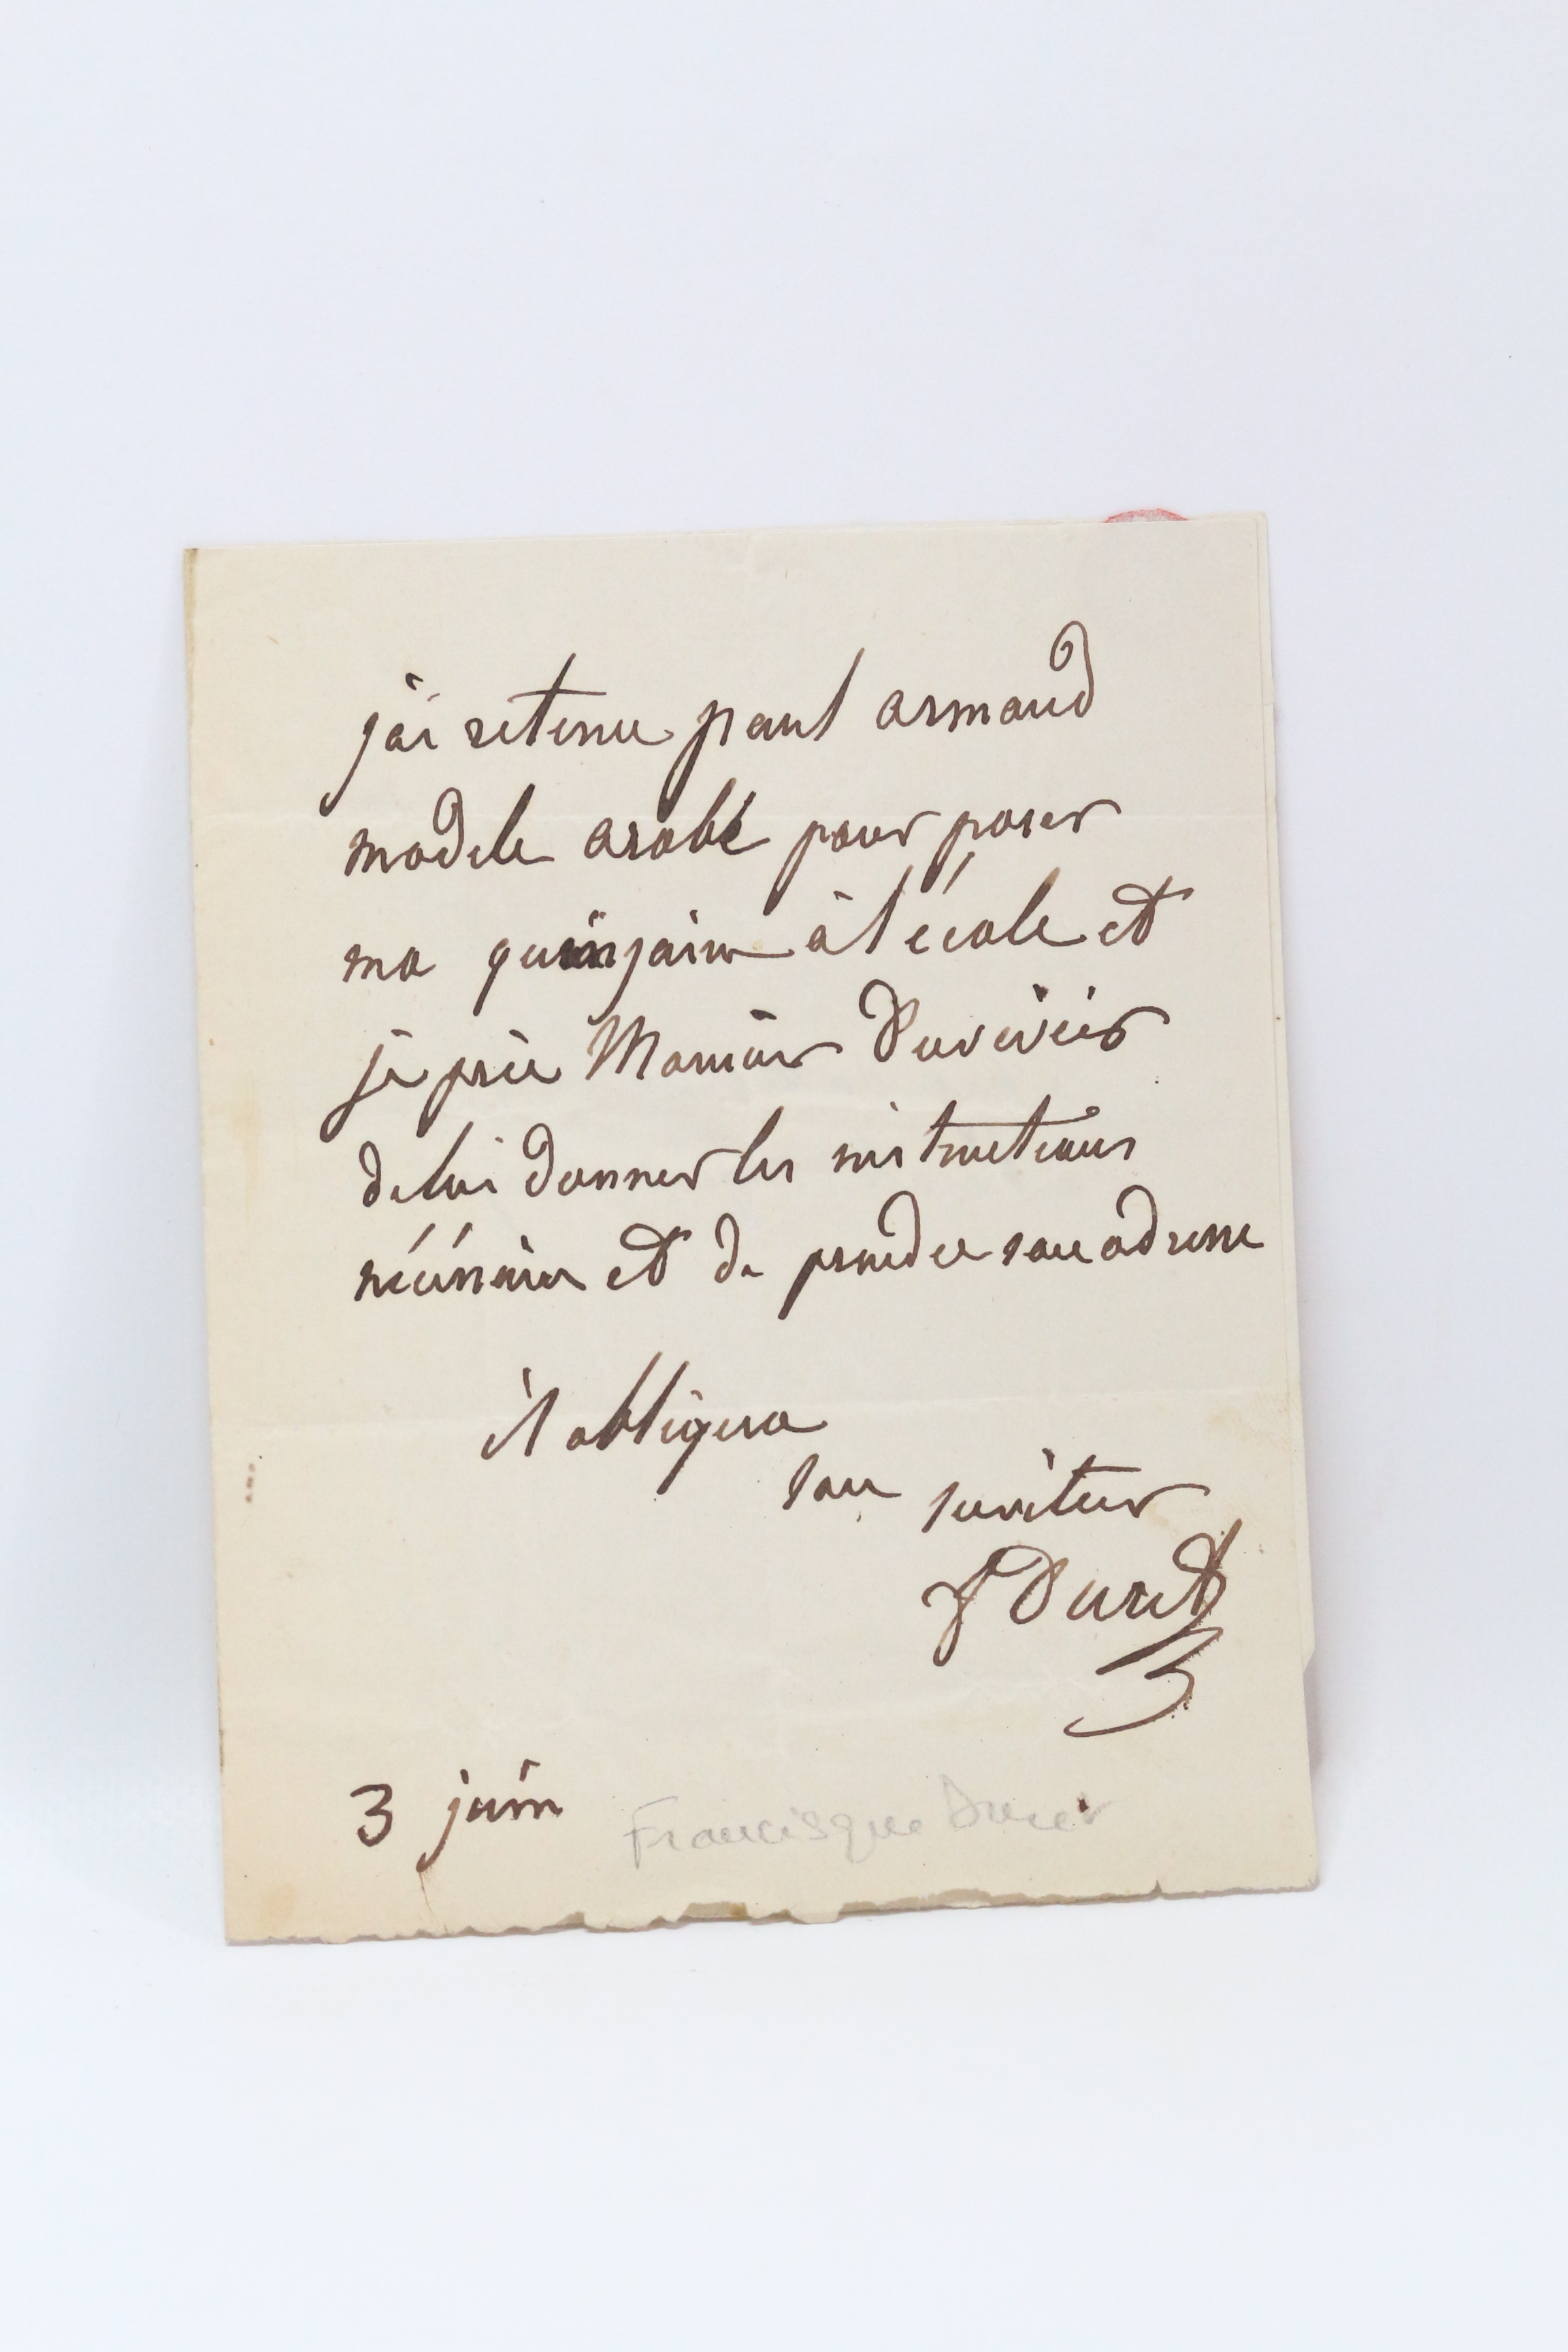 j'ai retenu paul armand
modele arabe pour poser
ma quinzaine à l'école et
je prie Monsieur Duvivier
de lui donner les instructions
nécéssaires et de prendre son adresse
il obligera
son serviteur
f Duret
3 juin
Francisque Duret